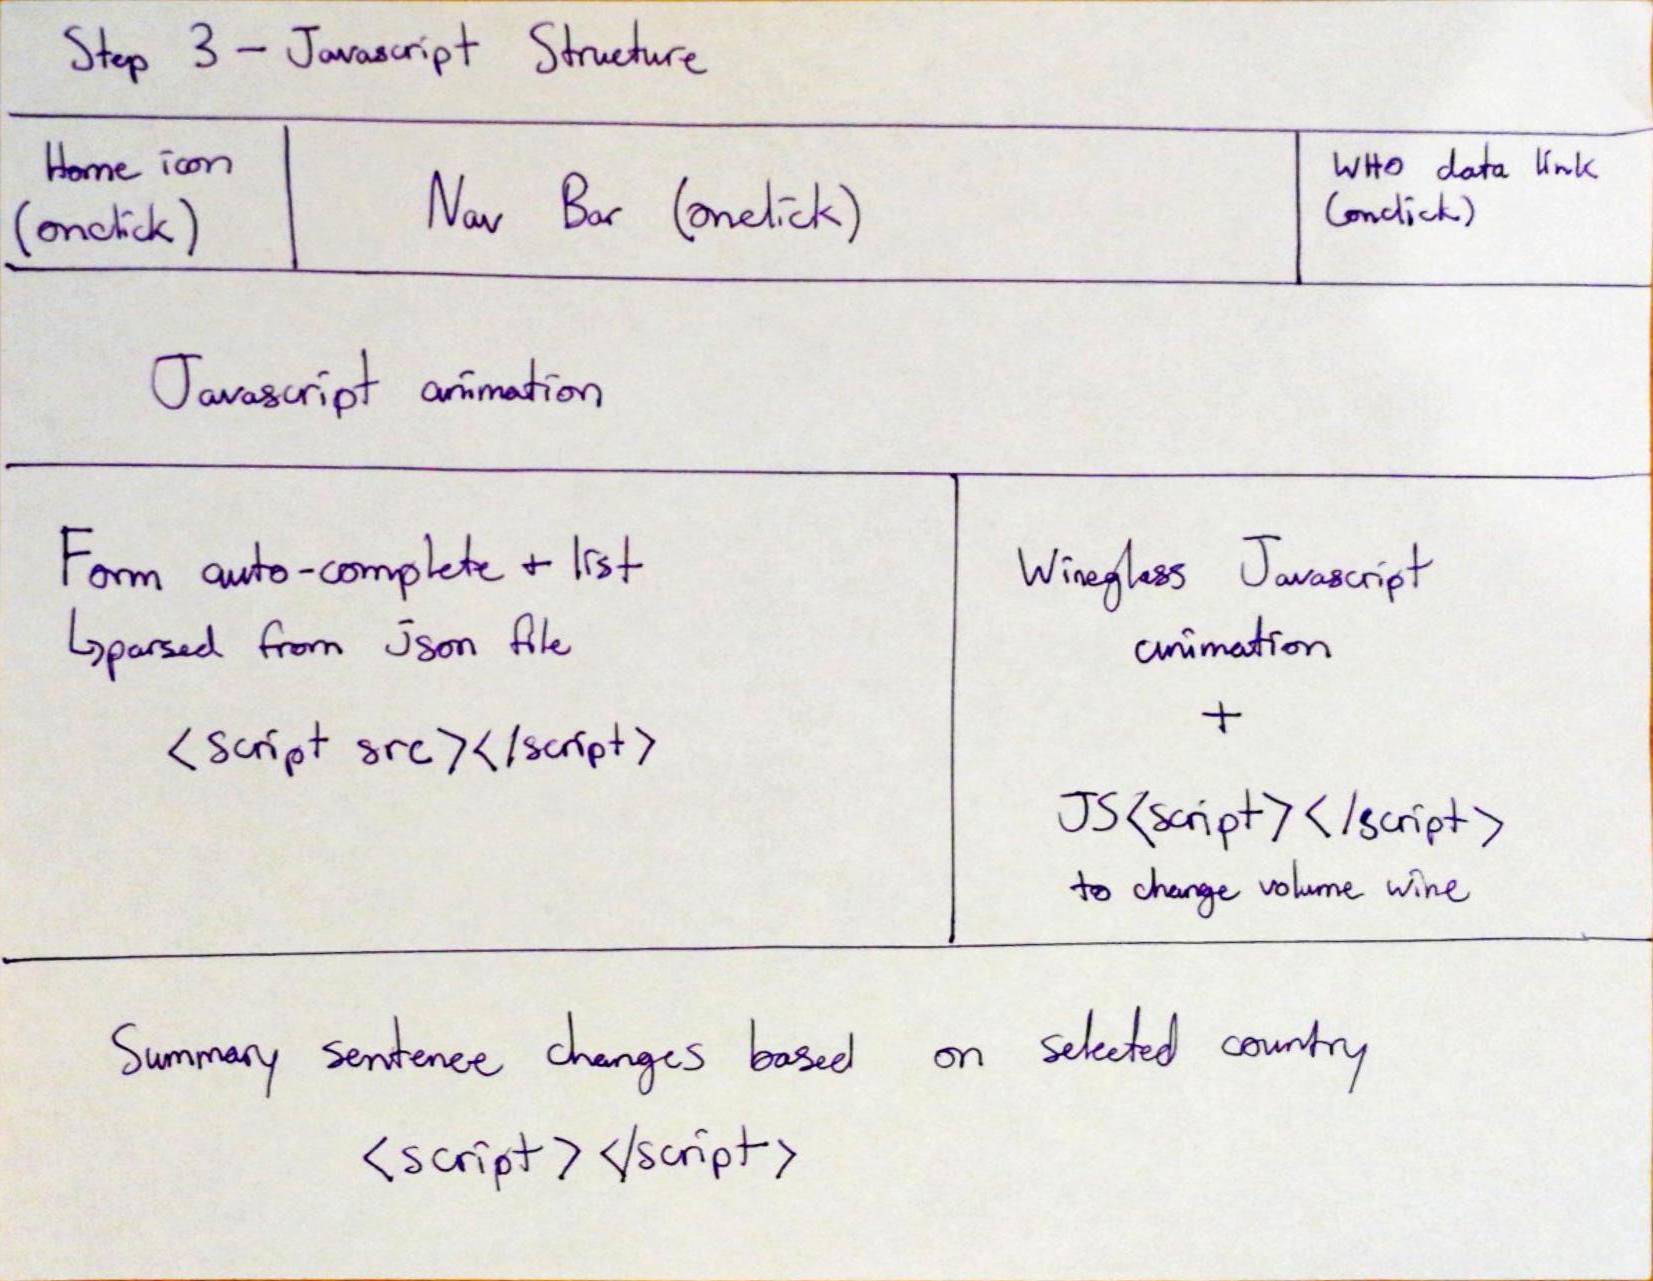 Step 3 - Javascript Structure
Home icon
(onclick)
Nav Bar (onclick)
WHO data link
(onclick)
Javascript animation
Form auto-complete + list
↳parsed from json file
<script src></script>
Wineglass Javascript
animation
+
JS<script></script>
to change volume wine
Summary sentence changes based on selected country
<script></script>